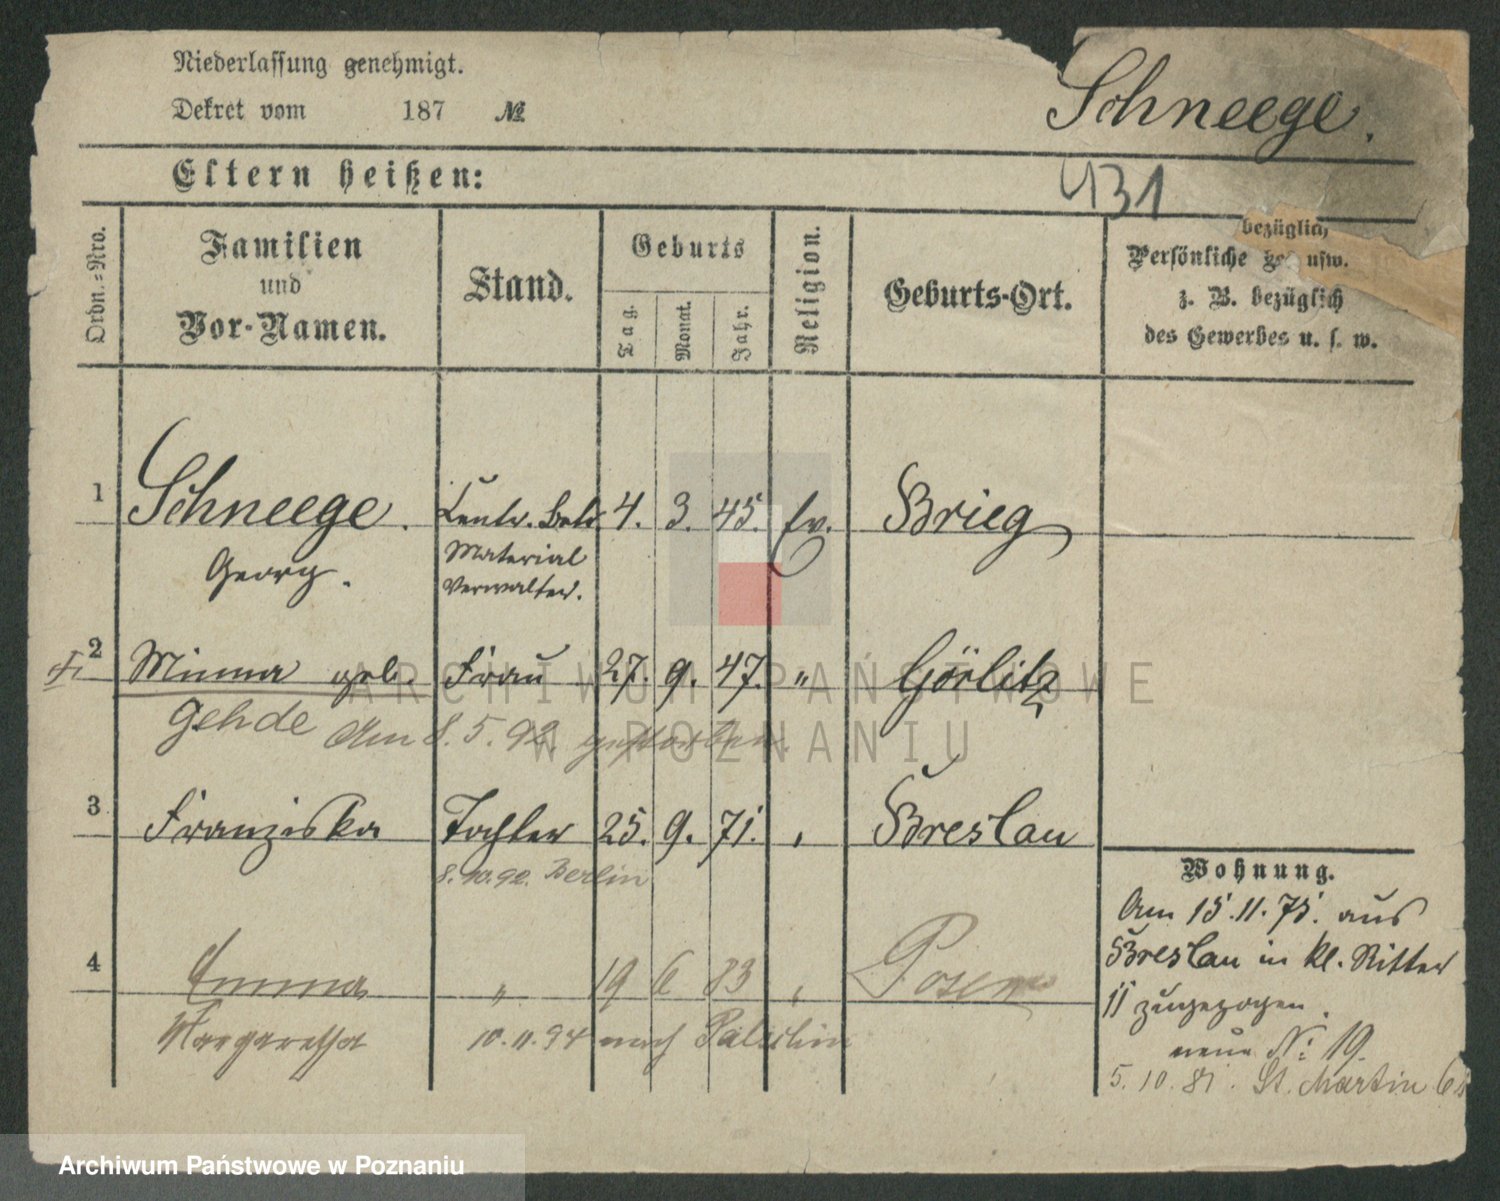 Niederlassung genehmigt.
Dekret vom 187 №
Schneege.
Eltern heißen:
431
Ordn.-Nro.
Familien
und
Vor-Namen.
Stand.
Geburts
Tag.
Monat.
Jahr.
Religion.
Geburts-Ort.
bezüglich
Persönliche usw.
z. B. bezüglich
des Gewerbes u. s. w.
1 Schneege. 4. 3. 45. Ev. Brieg
Georg. Material
Verwalter.
2 Minna geb. Frau 27. 9. 47. " Görlitz
Gehde Am 8. 5. 92 gestorben.
3 Franziska Tochter 25. 9. 71. " Breslau
8. 10. 92. Berlin
4 Emma " 19 6 83 " Posen
Margaretha 10. 11. 94 nach
Wohnung.
Am 15. 11. 75. aus
Breslau in kl. Ritter
11 zugezogen.
neue N: 19.
5. 10. 81. St. Martin
ARCHIWUM PAŃSTWOWE
W POZNANIU
Archiwum Państwowe w Poznaniu